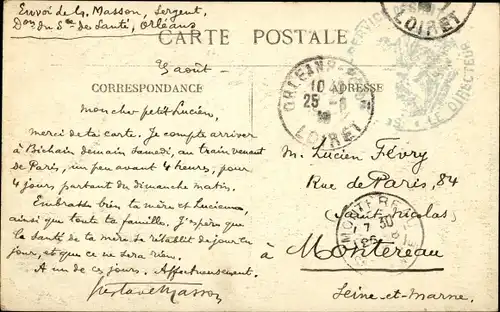 Envoi de G. Masson, Sergent,
Don du Sce de Santé, Orléans
CARTE POSTALE
CORRESPONDANCE
ADRESSE
25 août
Mon cher petit Lucien,
Merci de ta carte. Je compte arriver
à Bichain demain samedi, au train venant
de Paris, un peu avant 4 heures, pour
4 jours partant du dimanche matin.
Embrasse bien ta mère et Lucienne,
ainsi que toute ta famille. J'espère que
la santé de ta mère se rétablit de jour en
jour, et que ce ne sera rien.
A un de ces jours. Affectueusement.
Gustave Masson
M. Lucien Févry
Rue de Paris, 84
(Saint-Nicolas)
à Montereau
Seine-et-Marne.
LOIRET
SERVICE
LE DIRECTEUR
ORLEANS
10
25 - 8
LOIRET
MONTEREAU
7 30
25 8